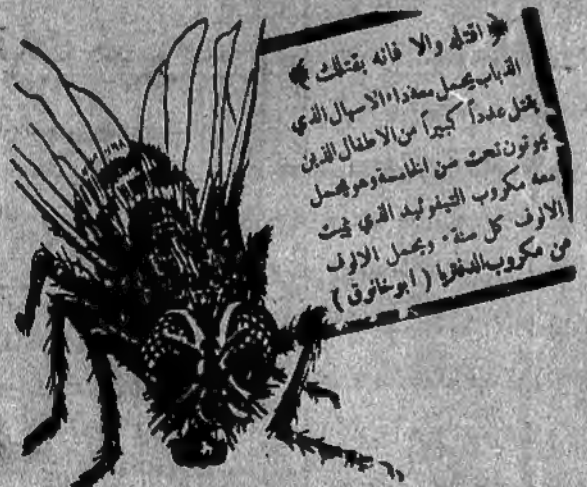 ﴿ اقتله والا فانه يقتلك ﴾
الذباب يحمل معه داء الاسهال الذي
يقتل عدداً كبيراً من الاطفال الذين
يموتون تحت سن الخامسة وهو يحمل
معه مكروب التيفوئيد الذي يميت
الالوف كل سنة، ويحمل الالوف
من مكروب الدفتريا (ابو خانوق)